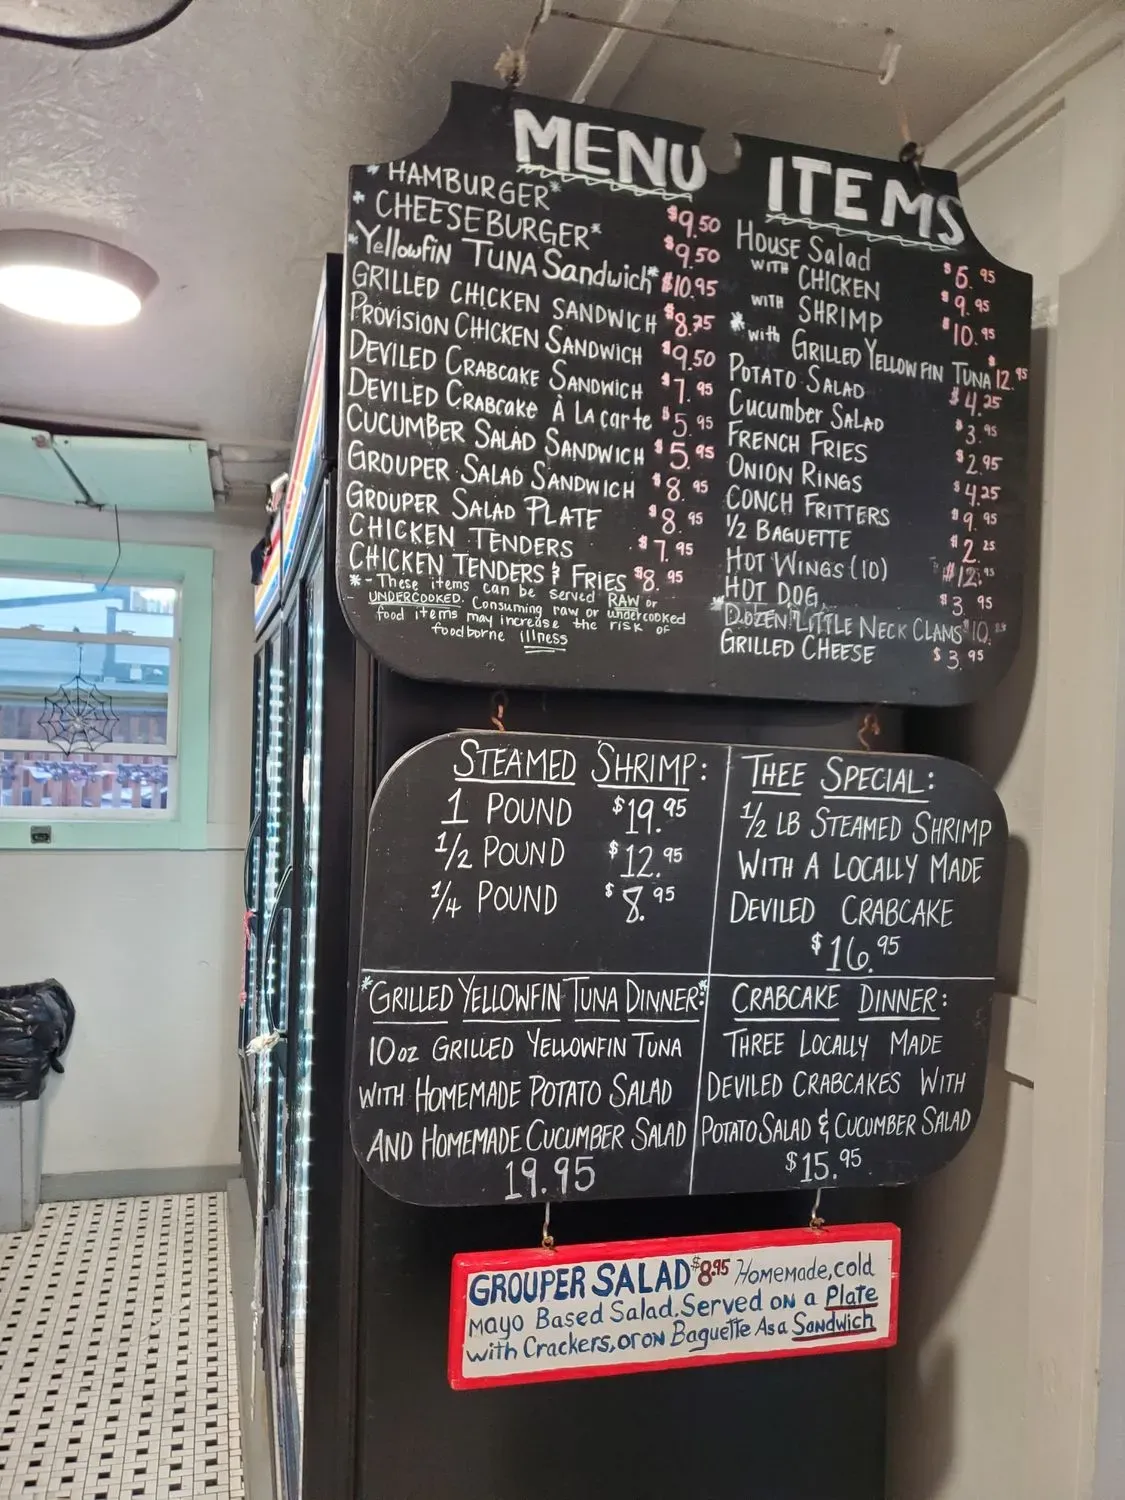 MENU ITEMS
* HAMBURGER* $9.50
* CHEESEBURGER* $9.50
* Yellowfin TUNA Sandwich* $10.95
GRILLED CHICKEN SANDWICH $8.75
PROVISION CHICKEN SANDWICH $9.50
DEVILED CRABCAKE SANDWICH $7.95
DEVILED CRABCAKE À LA carte $5.95
CUCUMBER SALAD SANDWICH $5.95
GROUPER SALAD SANDWICH $8.95
GROUPER SALAD PLATE $8.95
CHICKEN TENDERS $7.95
CHICKEN TENDERS & FRIES $8.95
*- These items can be served RAW or
UNDERCOOKED. Consuming raw or undercooked
food items may increase the risk of
foodborne illness
HOUSE Salad $6.95
WITH CHICKEN $9.95
WITH SHRIMP $10.95
*with GRILLED YELLOWFIN TUNA $12.95
POTATO SALAD $4.25
CUCUMBER SALAD $3.95
FRENCH FRIES $2.95
ONION RINGS $4.25
CONCH FRITTERS $9.95
1/2 BAGUETTE $2.25
HOT WINGS (10) $12.95
HOT DOG $3.95
DOZEN LITTLE NECK CLAMS $10.
GRILLED CHEESE $3.95
STEAMED SHRIMP:
1 POUND $19.95
1/2 POUND $12.95
1/4 POUND $8.95
THEE SPECIAL:
1/2 LB STEAMED SHRIMP
WITH A LOCALLY MADE
DEVILED CRABCAKE
$16.95
*GRILLED YELLOWFIN TUNA DINNER:*
10oz GRILLED YELLOWFIN TUNA
WITH HOMEMADE POTATO SALAD
AND HOMEMADE CUCUMBER SALAD
19.95
CRABCAKE DINNER:
THREE LOCALLY MADE
DEVILED CRABCAKES WITH
POTATO SALAD & CUCUMBER SALAD
$15.95
GROUPER SALAD $8.95 Homemade, cold
mayo Based Salad. Served on a Plate
with Crackers, or on Baguette As a Sandwich